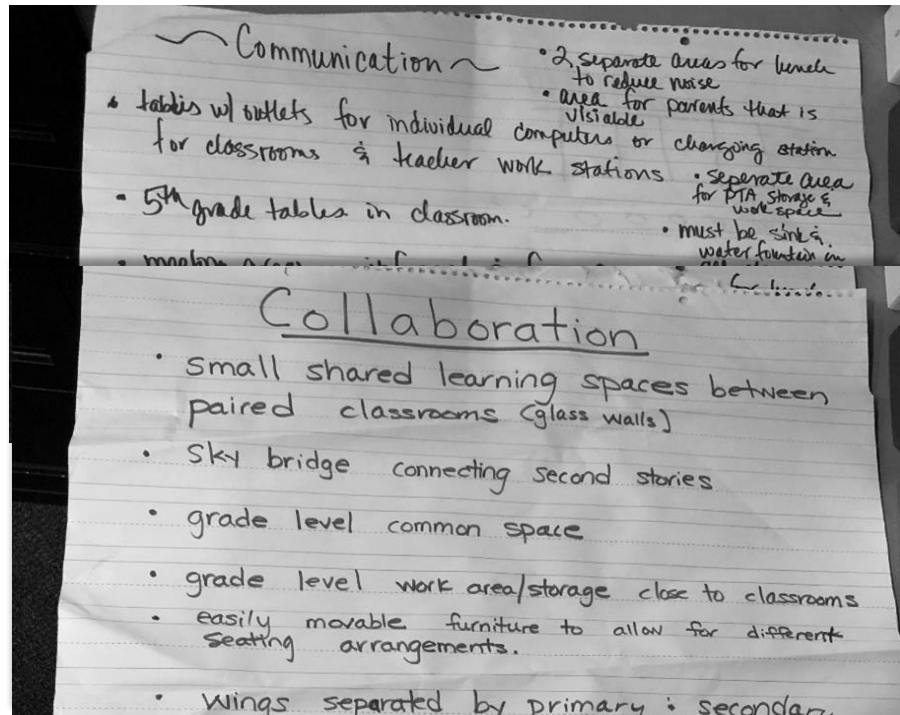 ~ Communication ~
• tables w/ outlets for individual computers or changing station
for classrooms & teacher work stations
• 5th grade tables in classroom.
• 2 separate areas for lunch
to reduce noise
• area for parents that is
visiable
• seperate area
for PTA storage &
work space
• must be sink &
water fountain in
Collaboration
• small shared learning spaces between
paired classrooms (glass walls)
• Sky bridge connecting second stories
• grade level common space
• grade level work area/storage close to classrooms
• easily movable furniture to allow for different
seating arrangements.
• wings separated by primary & secondary